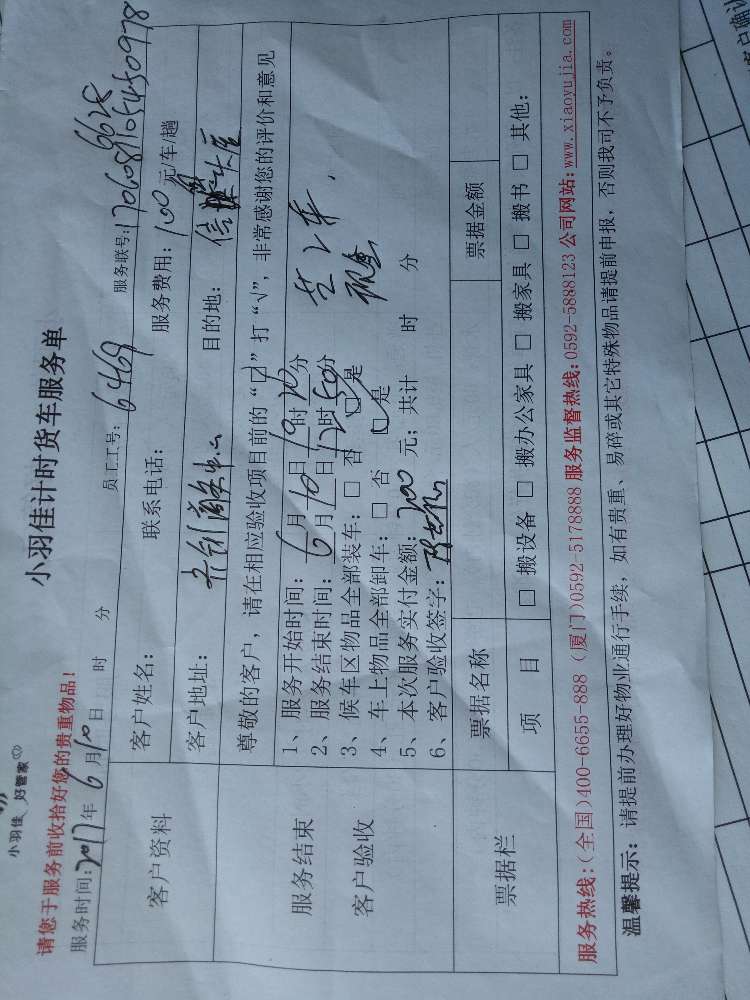 小羽佳 好管家
小羽佳计时货车服务单
请您于服务前收拾好您的贵重物品!
服务时间:2017年6月10日 时 分 员工工号: 6469 服务联号:
客户资料
客户姓名: 联系电话: 服务费用: 100元/车/趟
客户地址: 目的地:
服务结束
客户验收
尊敬的客户,请在相应验收项目前的“口”打“√”,非常感谢您的评价和意见
1、服务开始时间: 6月10日 时 分
2、服务结束时间: 6月10日12时50分
3、候车区物品全部装车:□ 否 □ 是
4、车上物品全部卸车:□ 否 □ 是 现金
5、本次服务实付金额: 200元; 共计 时 分
6、客户验收签字:
票据栏
票据名称 票据金额
项 目 □ 搬设备 □ 搬办公家具 □ 搬家具 □ 搬书 □ 其他:
服务热线:(全国)400-6655-888 (厦门)0592-5178888 服务监督热线:0592-5888123 公司网站:www.xiaoyujia.com
温馨提示: 请提前办理好物业通行手续, 如有贵重、易碎或其它特殊物品请提前申报, 否则我司不予负责。